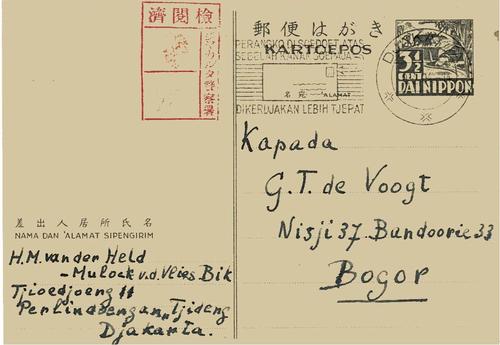 検閲済
ジャカルタ警察署
郵便はがき
KARTOEPOS
PERANGKO DISOEDOET ATAS
SEBELAH KANAN
名宛 'ALAMAT
DIKERDJAKAN LEBIH TJEPAT
3½
CENT
DAI NIPPON
Kapada
G.T. de Voogt
Nisji 37. Bandoorie 33
Bogor
差出人居所氏名
NAMA DAN 'ALAMAT SIPENGIRIM
H.M. van der Held
- Mulock v.d. Vlies Bik
Tjioedjoeng 11
Perlindoengan "Tjideng
Djakarta.